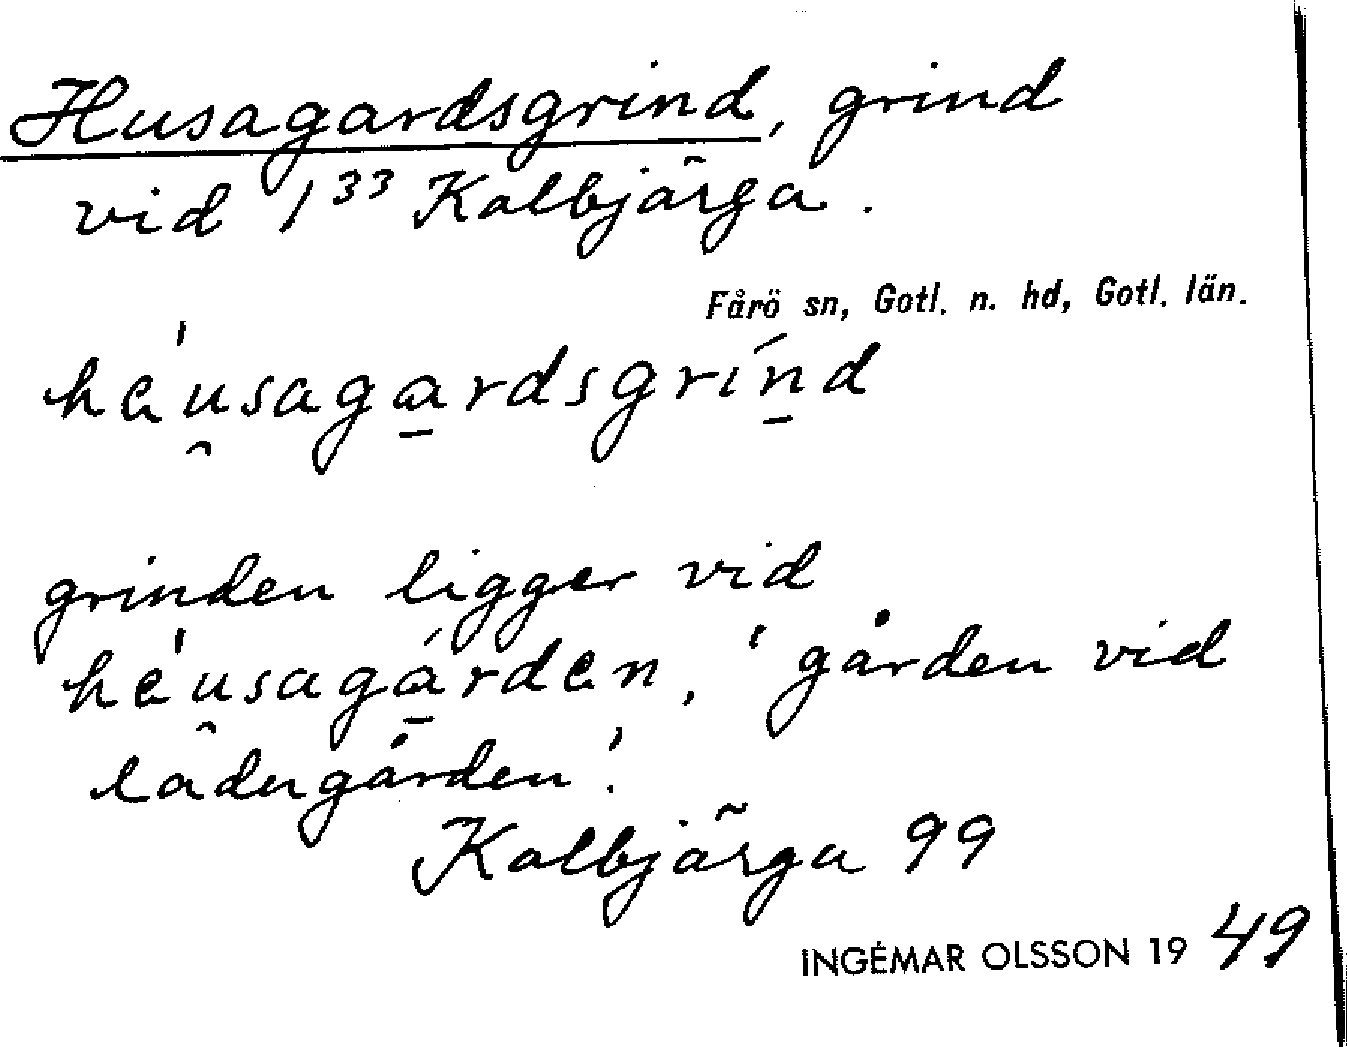 Husagardsgrind, grind
vid 1³³ Kalbjärga.
Fårö sn, Gotl. n. hd, Gotl. län.
hèusagardsgrind
grinden ligger vid
hèusagárden, 'gården vid
ladugården'.
Kalbjärga 99
INGEMAR OLSSON 1949